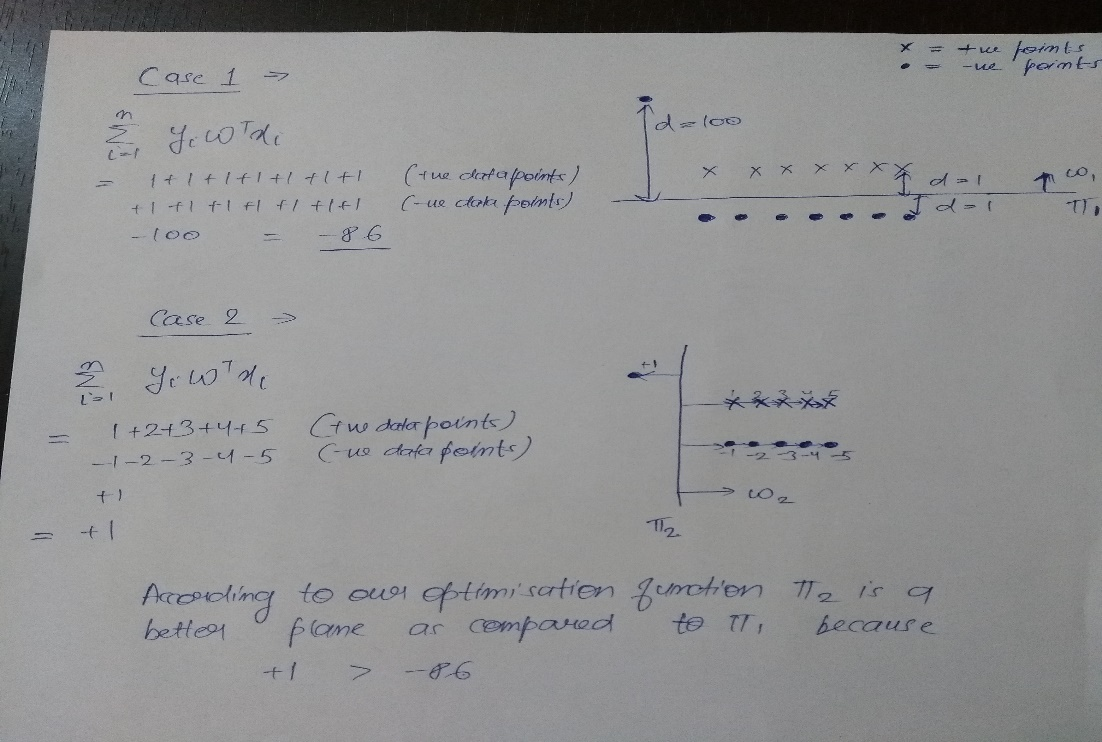 x = +ve points
• = -ve points
Case 1 ⇒
n
∑ yᵢ wᵀxᵢ
i=1
= 1+1+1+1+1+1+1 (+ve datapoints)
+1+1+1+1+1+1+1 (-ve data points)
-100 = -86
d=100
d=1
d=1
w₁
π₁
Case 2 ⇒
n
∑ yᵢ wᵀxᵢ
i=1
= 1+2+3+4+5 (+ve datapoints)
-1-2-3-4-5 (-ve datapoints)
+1
= +1
+1
1 2 3 4 5
-1 -2 -3 -4 -5
w₂
π₂
According to our optimisation function π₂ is a
better plane as compared to π₁ because
+1 > -86